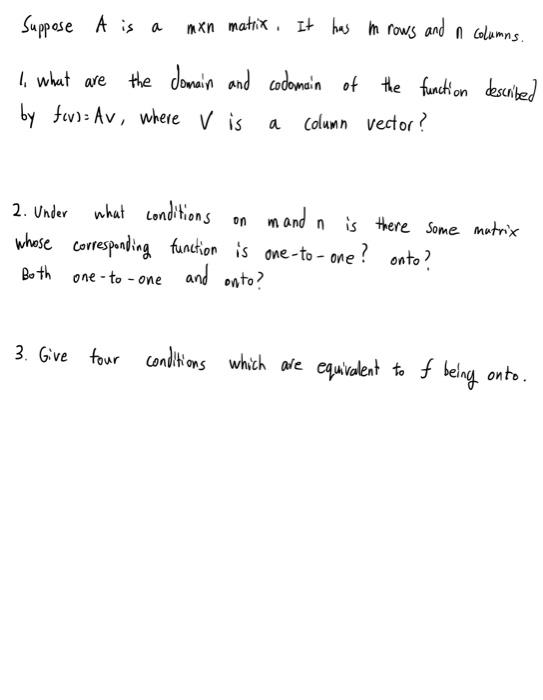 Suppose A is a mxn matrix. It has m rows and n columns.
1. what are the domain and codomain of the function described
by f(v)=Av, where V is a column vector?
2. Under what conditions on m and n is there some matrix
whose corresponding function is one-to-one? onto?
Both one-to-one and onto?
3. Give four conditions which are equivalent to f being onto.